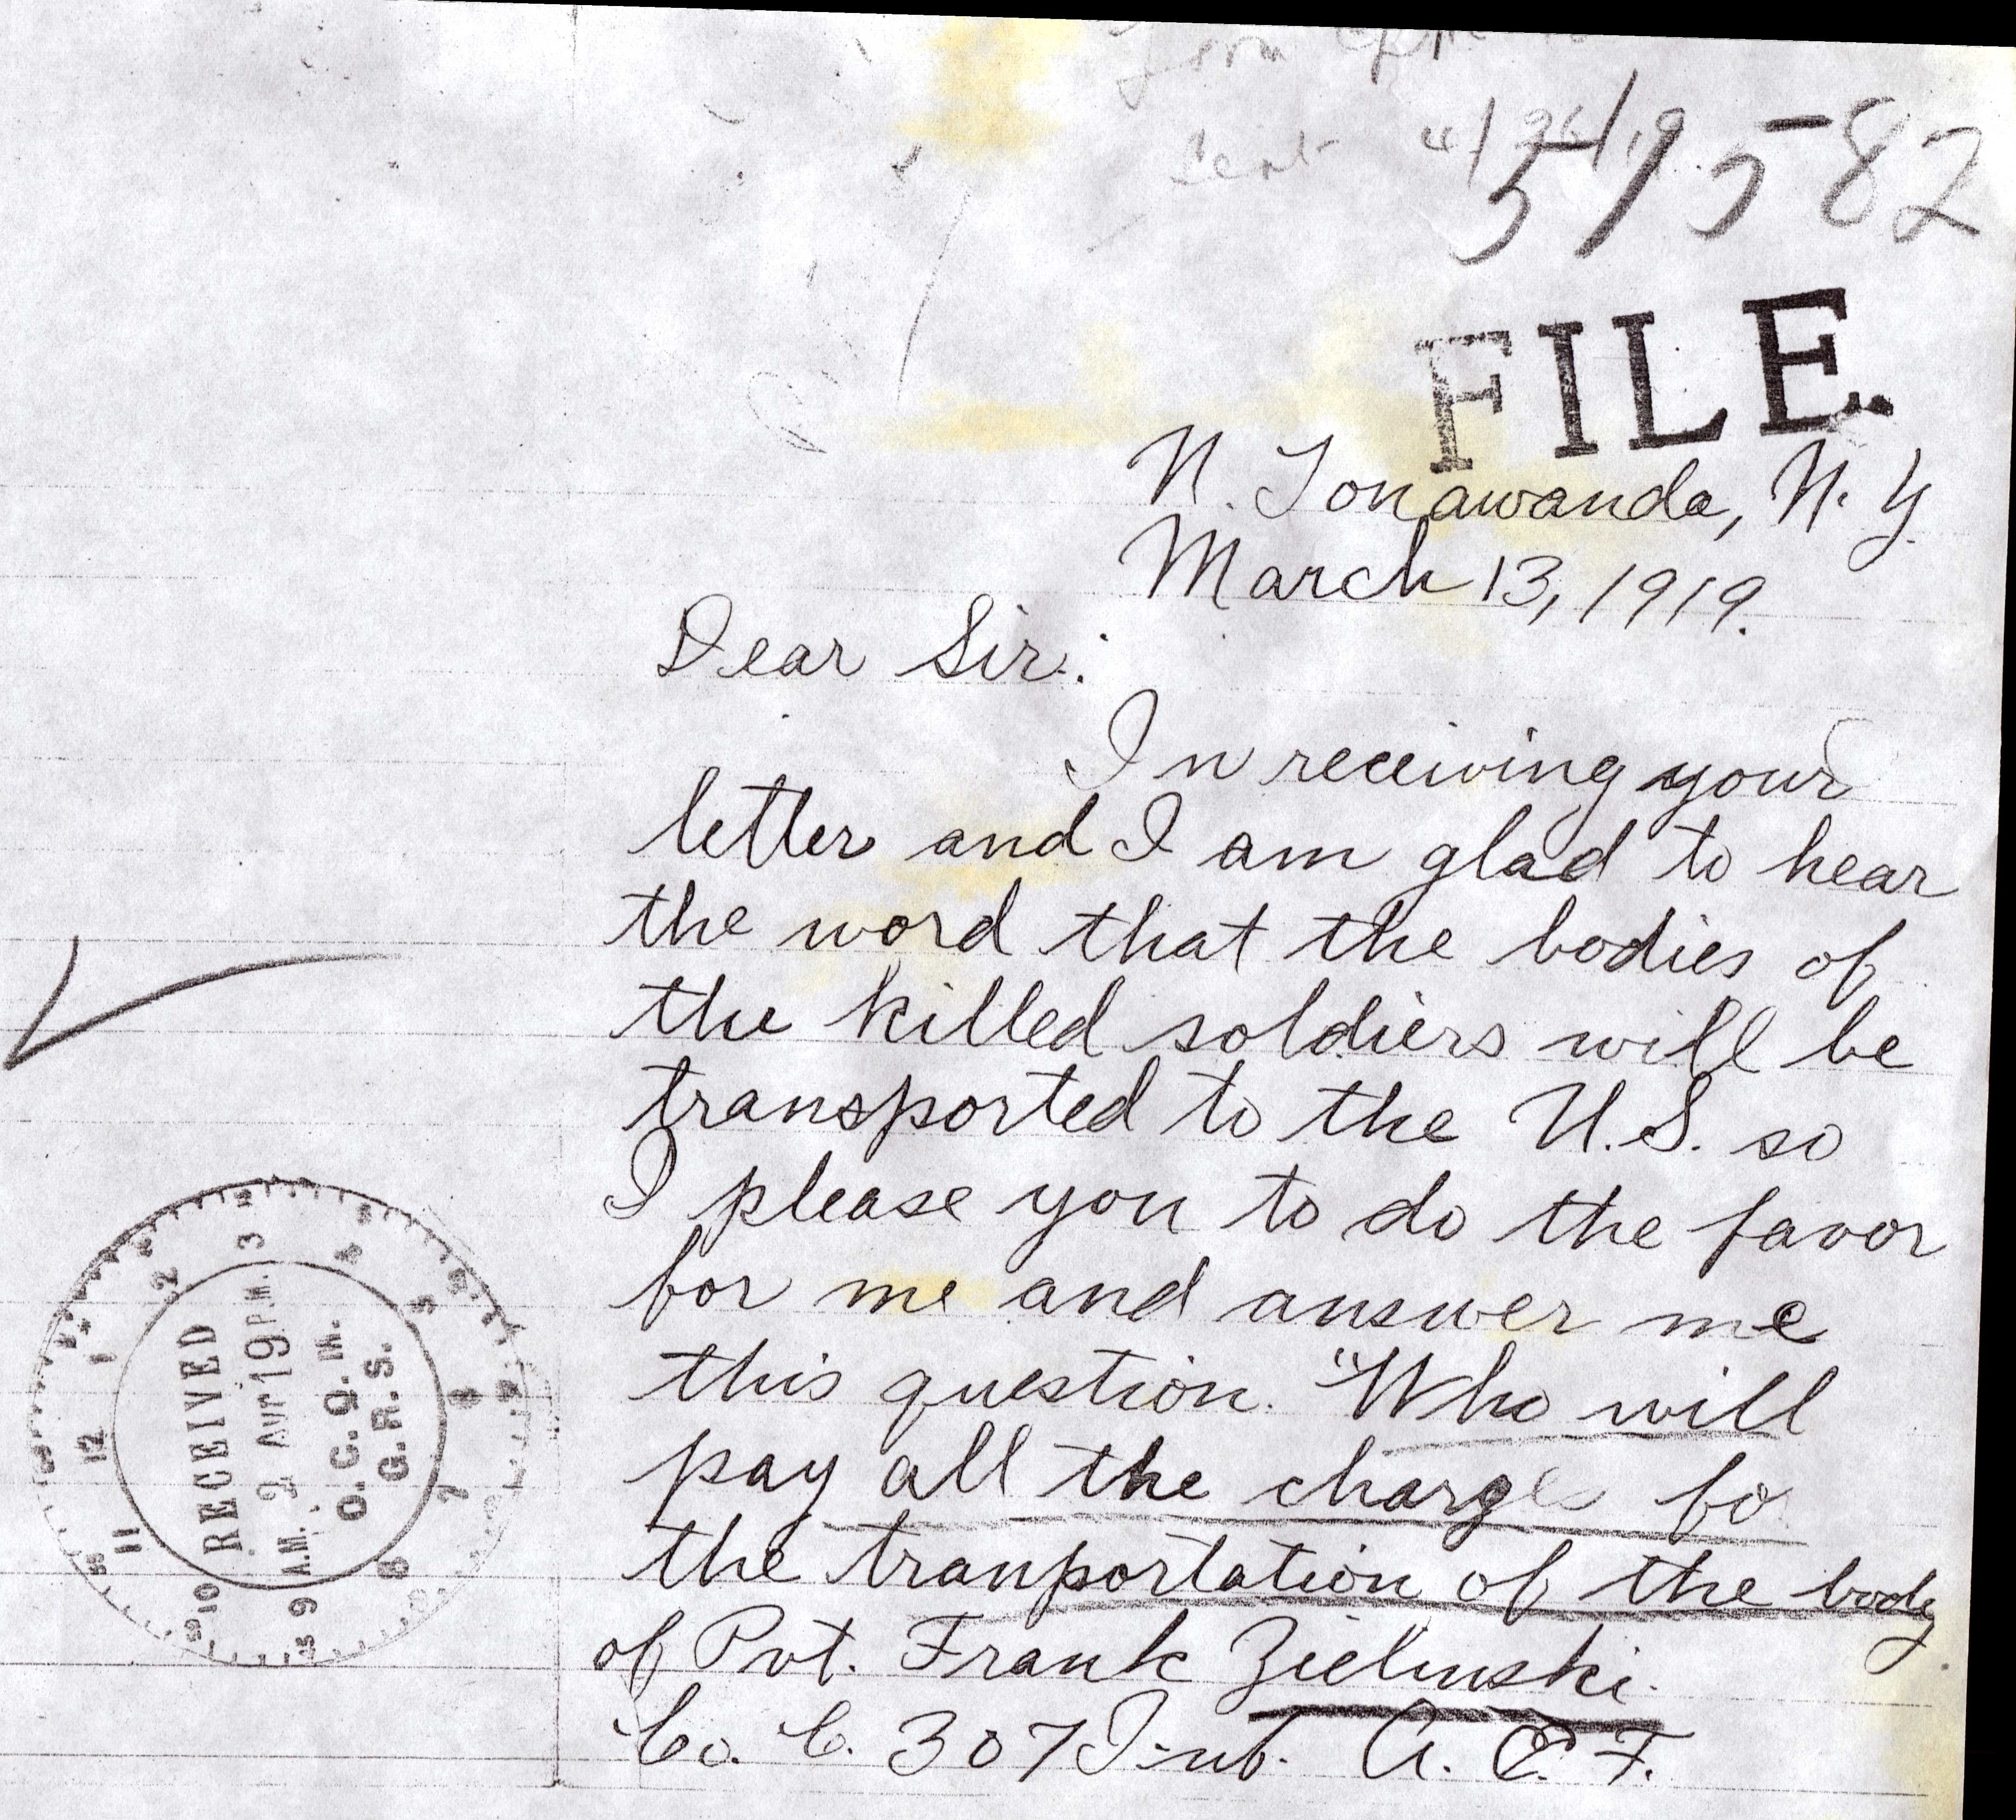 Sent 4/26/19
319582
FILE.
N. Tonawanda, N. Y.
March 13, 1919.
Dear Sir:
In receiving your
letter and I am glad to hear
the word that the bodies of
the killed soldiers will be
transported to the U.S. so
I please you to do the favor
for me and answer me
this question. "Who will
pay all the charges fo
the tranportation of the body
of Pvt. Frank Zielinski
Co. C. 307 Inf. A. E. F.
RECEIVED
A.M. 2 Apr 19 P.M.
O. C. Q. M.
G. R. S.